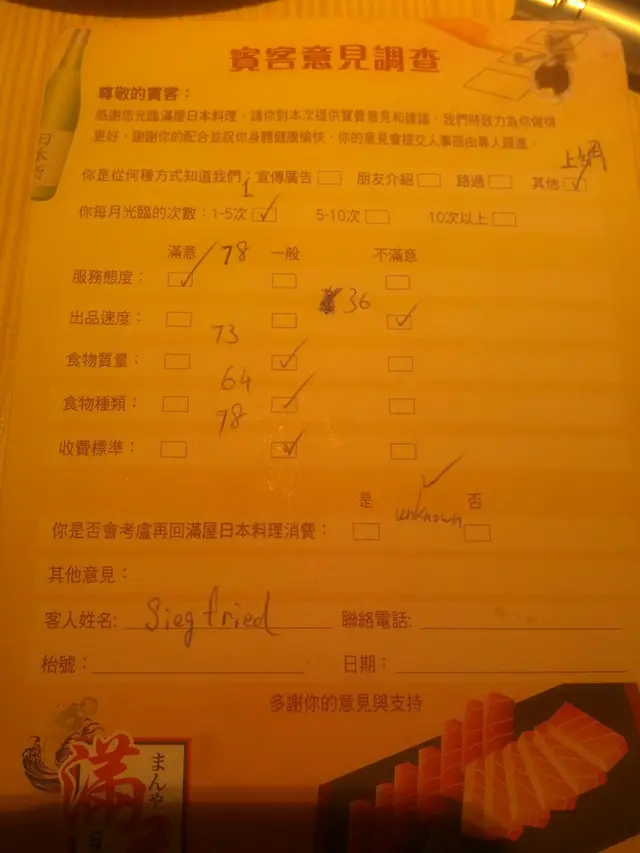 賓客意見調查
尊敬的賓客：
感謝您光臨滿屋日本料理，請你對本次提供寶貴意見和建議，我們將致力為你做得
更好，謝謝你的配合並祝你身體健康愉快，你的意見會提交人事部由專人跟進。
上網
你是從何種方式知道我們：宣傳廣告 朋友介紹 路過 其他 ✓
1
你每月光臨的次數：1-5次 ✓ 5-10次 10次以上
滿意 78 一般 不滿意
服務態度： ✓
36
出品速度： ✓
73
食物質量： ✓
64
食物種類： ✓
78
收費標準： ✓
是 ✓ 否
unknown
你是否會考慮再回滿屋日本料理消費：
其他意見：
客人姓名: Siegfried 聯絡電話:
枱號： 日期：
多謝你的意見與支持
滿
まんや
日